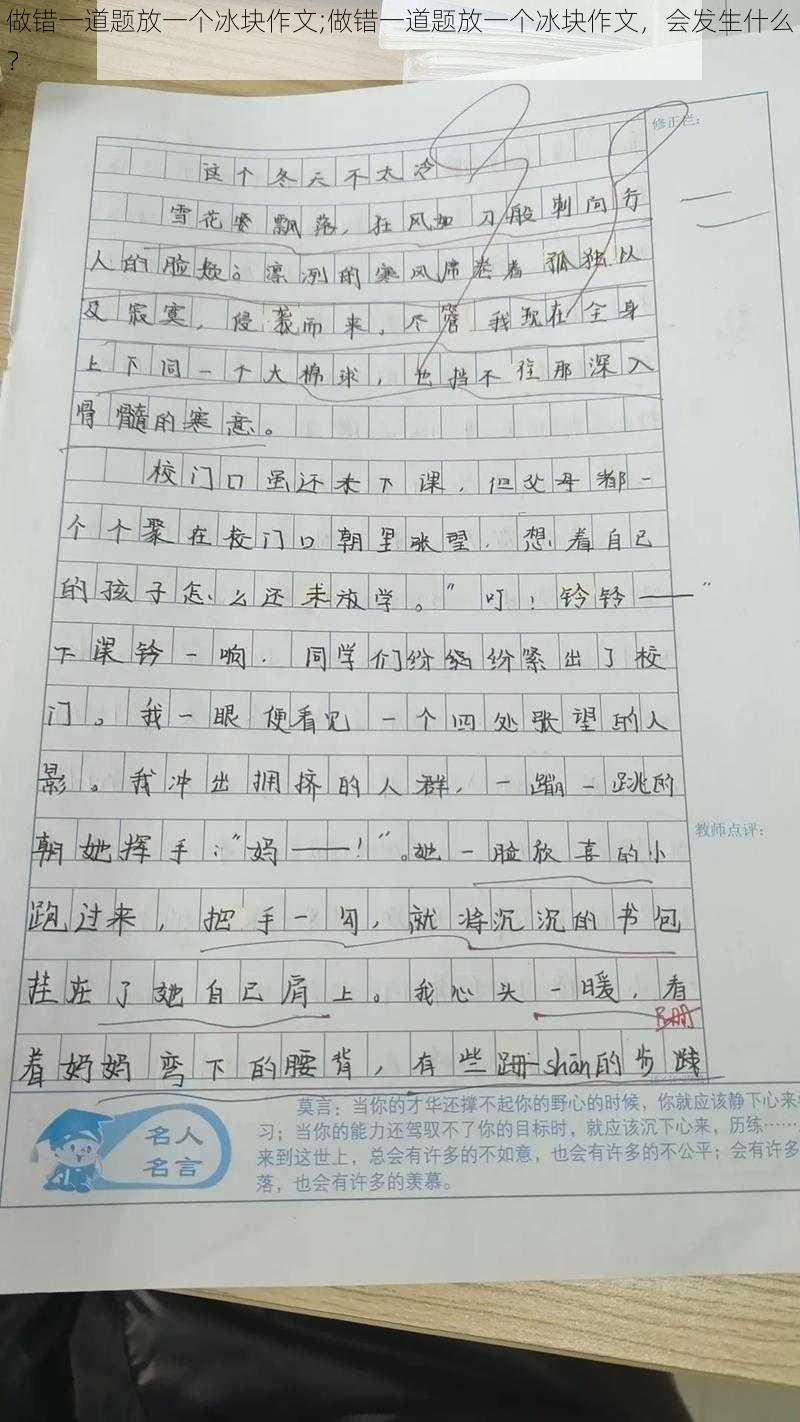 做错一道题放一个冰块作文;做错一道题放一个冰块作文，会发生什么
？
修正栏：
这个冬天不太冷
雪花飘落，狂风如刀般刺向行
人的脸颊。凛冽的寒风席卷着孤独以
及寂寞，侵袭而来，尽管我现在全身
上下同一个大棉球，也挡不住那深入
骨髓的寒意。
校门口虽还未下课，但父母都一
个个聚在校门口朝里张望，想着自己
的孩子怎么还未放学。"叮！铃铃——"
下课铃一响，同学们纷纷紧出了校
门。我一眼便看见一个四处张望的人
影。我冲出拥挤的人群，一蹦一跳的
朝她挥手："妈——！"。她一脸欣喜的小
跑过来，把手一勾，就将沉沉的书包
挂在了她自己肩上。我心头一暖，看
着妈妈弯下的腰背，有些跚shān的步
教师点评：
名人
名言
莫言：当你的才华还撑不起你的野心的时候，你就应该静下心来
习；当你的能力还驾驭不了你的目标时，就应该沉下心来，历练……
来到这世上，总会有许多的不如意，也会有许多的不公平；会有许多
落，也会有许多的羡慕。